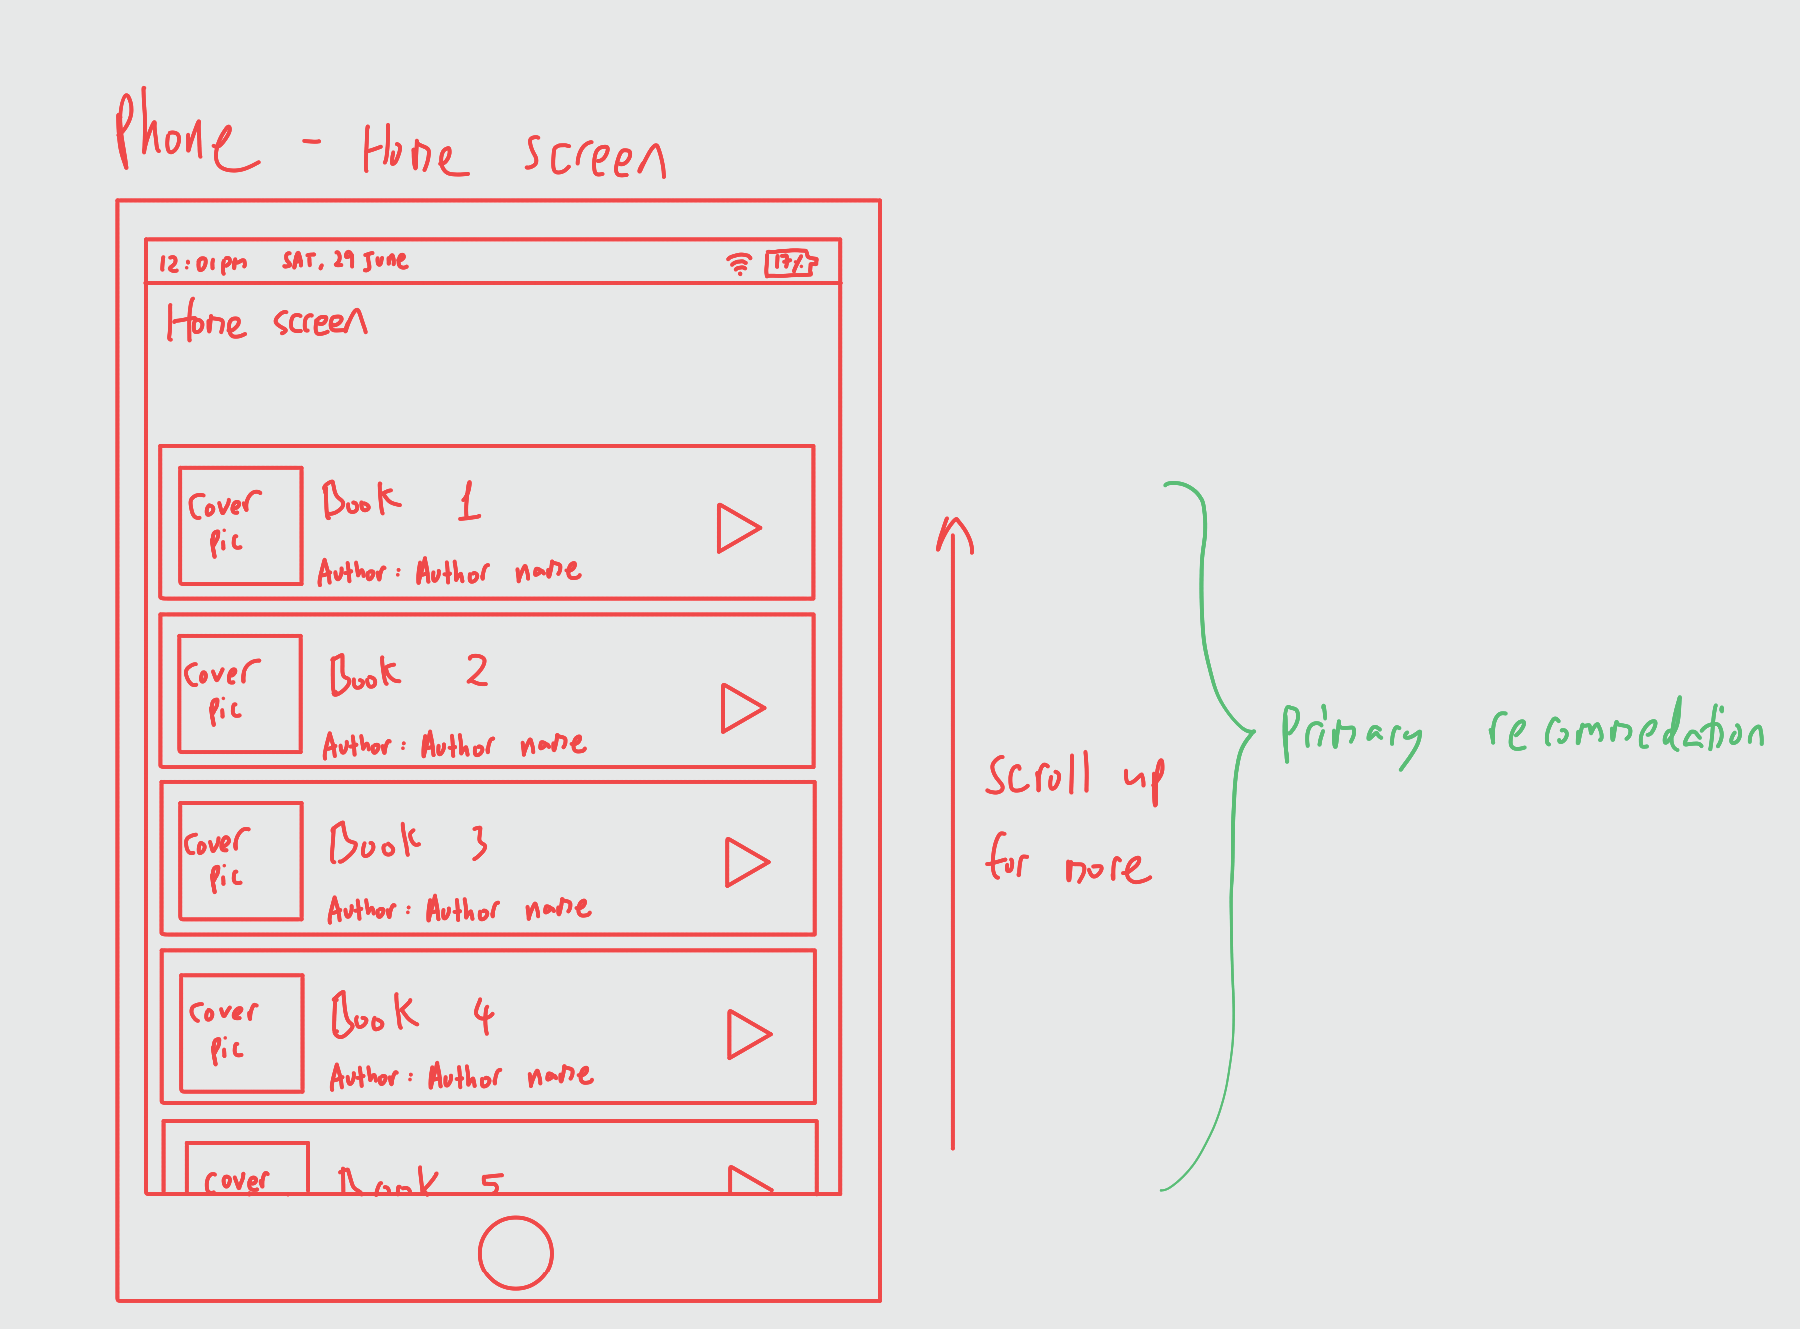 Phone - Home screen
12:01pm SAT, 29 June 17%
Home screen
Cover pic
Book 1
Author: Author name
Cover pic
Book 2
Author: Author name
Cover pic
Book 3
Author: Author name
Cover pic
Book 4
Author: Author name
Cover
Book 5
scroll up
for more
Primary recommedation